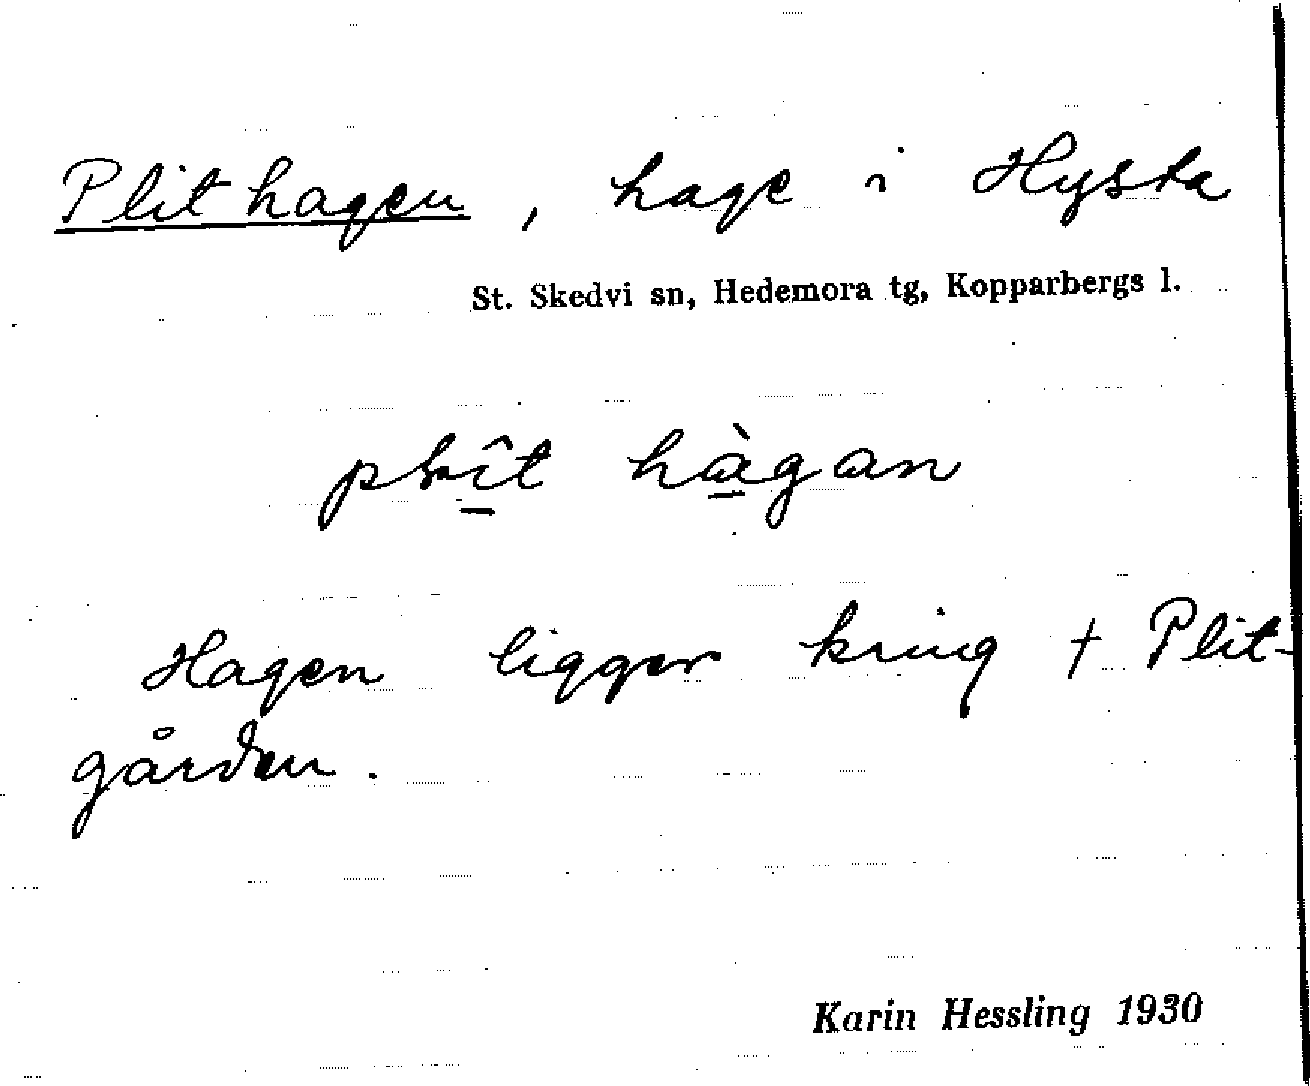 Plithagen, hage i Hysta
St. Skedvi sn, Hedemora tg, Kopparbergs l.
hàgan
Hagen ligger kring † Plit-
gården.
Karin Hessling 1930